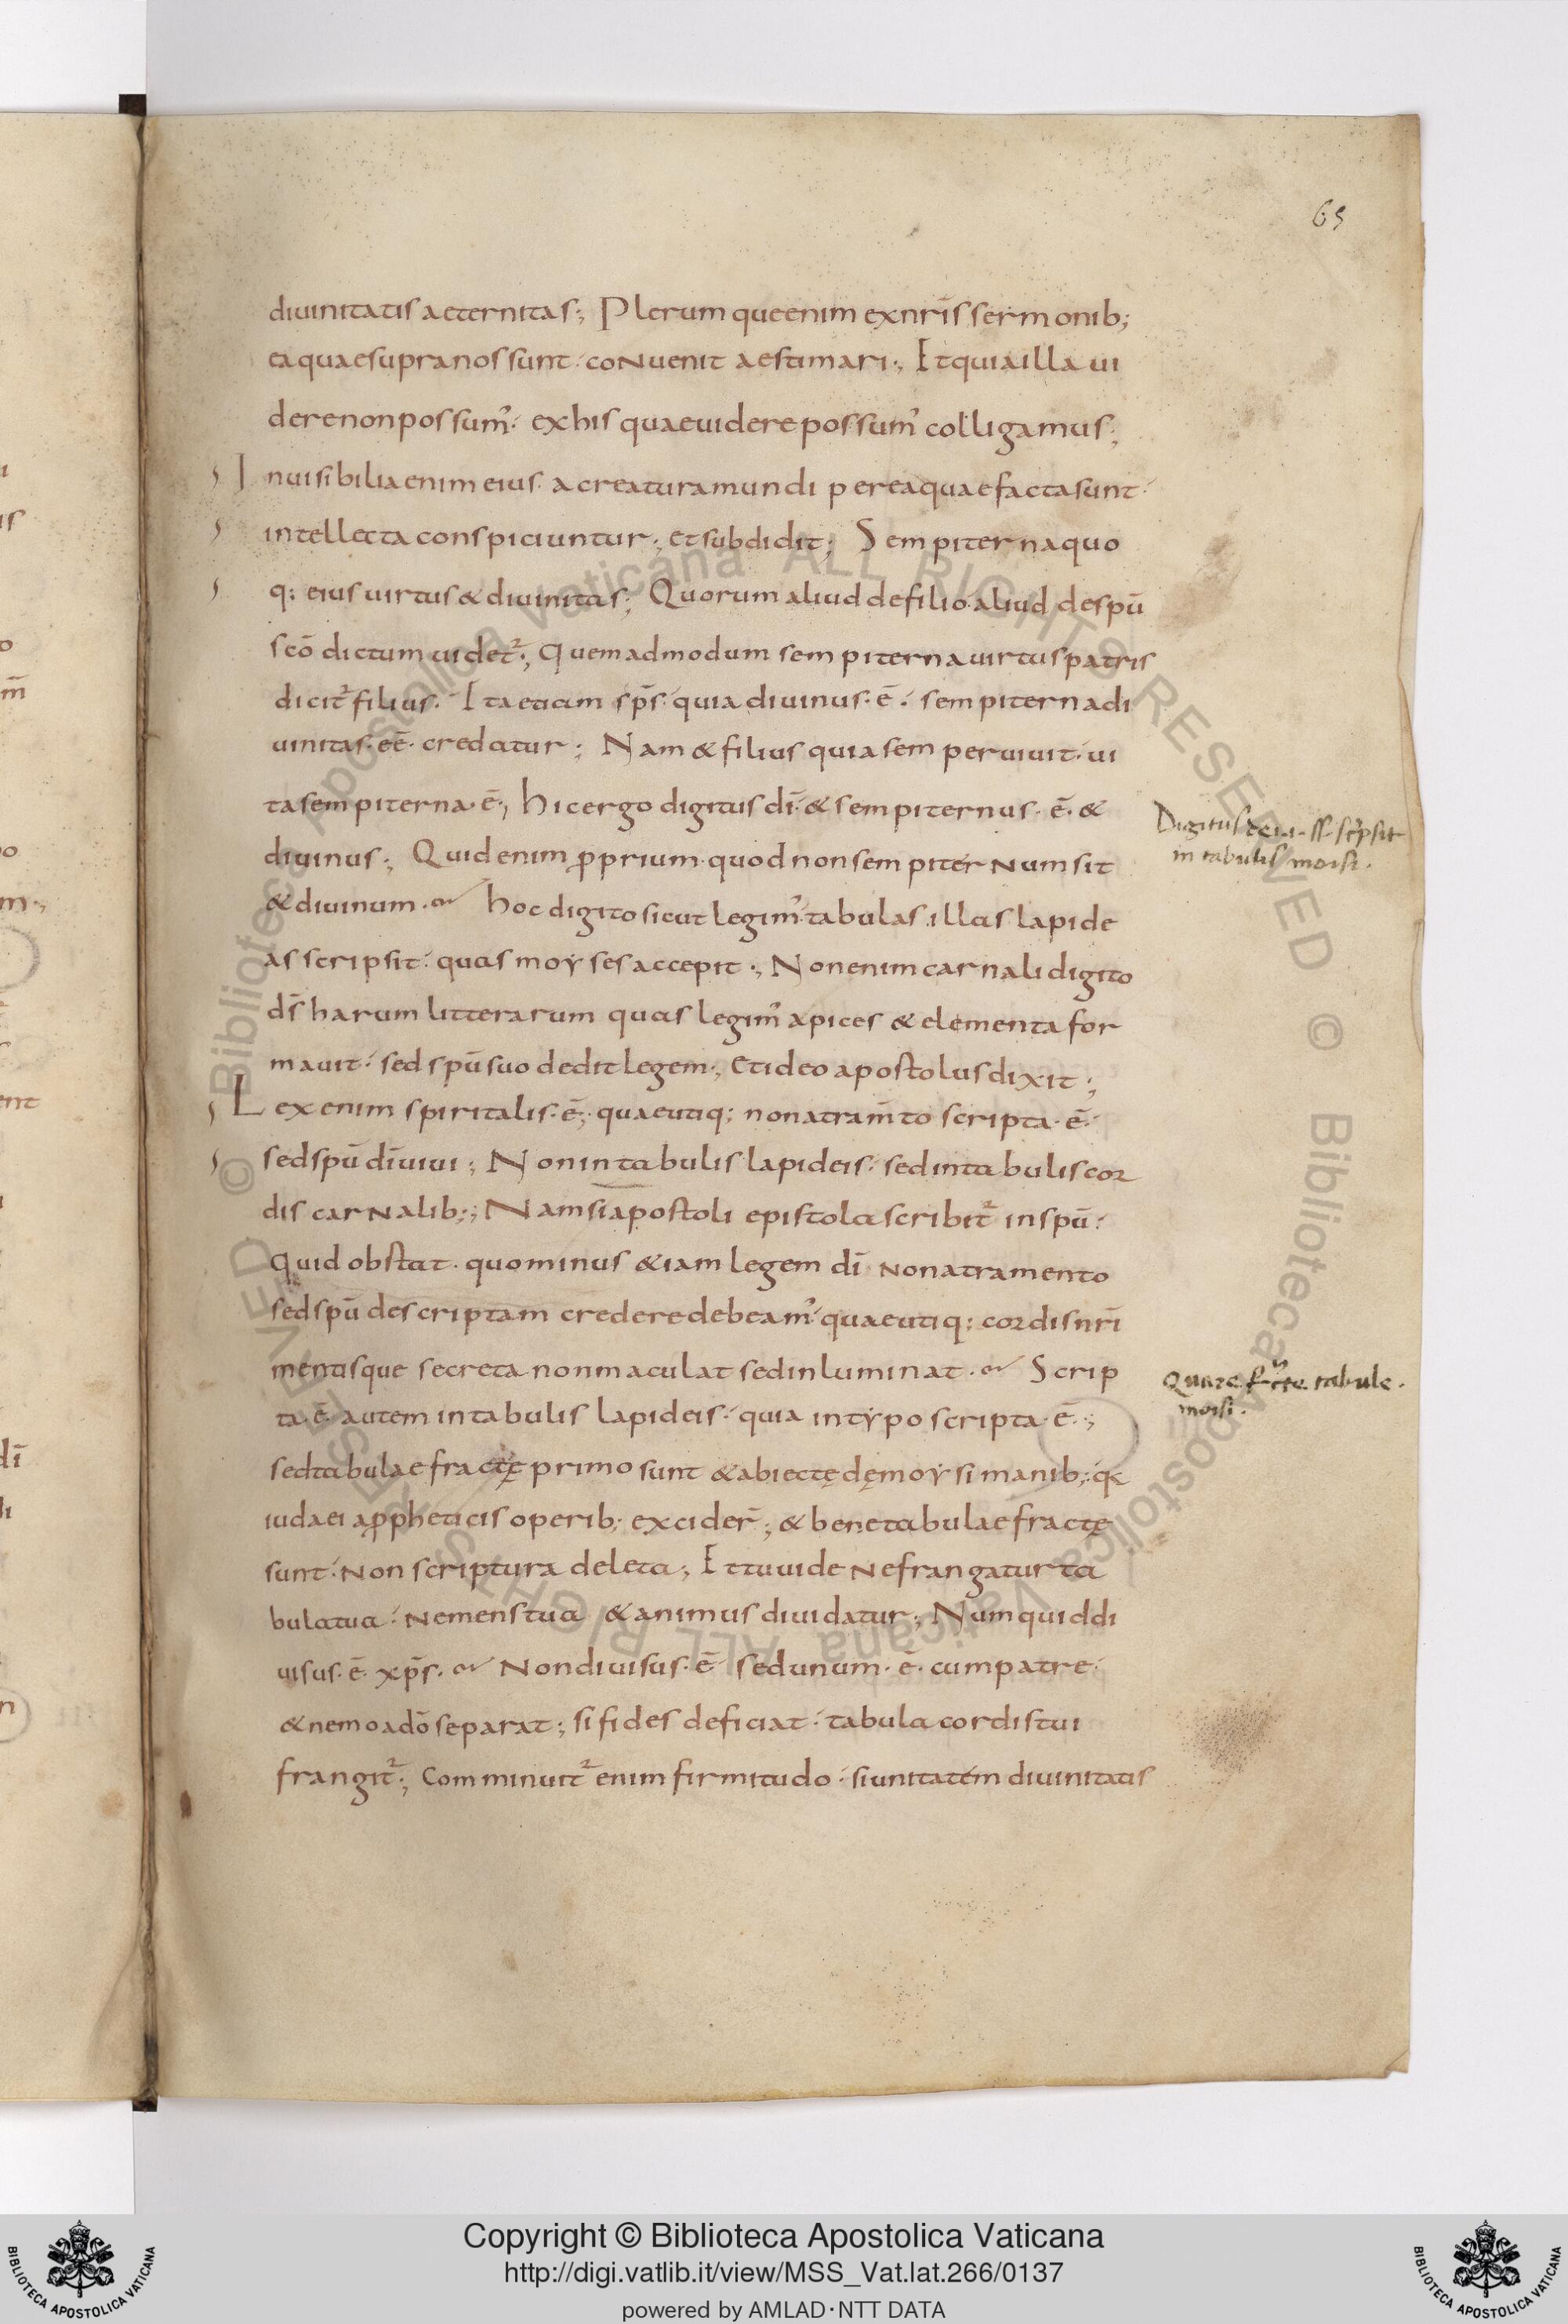 65
diuinitatis aeternitas; Plerumque enim ex nr̄is sermonib;
ea quae supra nos sunt · conuenit aestimari; Et quia illa ui
dere non possum᾿· ex his quae uidere possum᾿ colligamus;
Inuisibilia enim eius a creatura mundi per ea quae facta sunt·
intellecta conspiciuntur; et subdidit; Sempiterna quo
q; eius uirtus & diuinitas; Quorum aliud de filio · aliud de spū
scō dictum uidet᾿; Quemadmodum sempiterna uirtus patris
dicit᾿ filius · Ita etiam sp̄s · quia diuinus · ē · sempiterna di
uinitas · eē · credatur; Nam & filius quia semper uiuit · ui
ta sempiterna · ē; hic ergo digitus dī · & sempiternus · ē · &
diuinus; Quid enim p̄prium · quod non sempiternum sit
& diuinum · hoc digito sicut legim᾿ tabulas illas lapide
as scripsit · quas moyses accepit; Non enim carnali digito
ds̄ harum litterarum quas legim᾿ apices & elementa for
mauit · sed spū suo dedit legem; Et ideo apostolus dixit;
Lex enim spiritalis · ē · quae utiq; non atram̄to scripta · ē ·
sed spū dī uiui; Non in tabulis lapideis · sed in tabulis cor
dis carnalib;; Nam si apostoli epistola scribit᾿ in spū ·
Quid obstat · quominus &iam legem dī non atramento
sed spū descriptam credere debeam᾿ · quae utiq; cordis nr̄i
mentisque secreta non maculat sed inluminat · Scrip
ta · ē · autem in tabulis lapideis · quia in typo scripta · ē ·;
sed tabulae fractę primo sunt & abiectę dę moysi manib; · q
iudaei a p̄pheticis operib; excider̄; & bene tabulae fractę
sunt · Non scriptura deleta; Et tu uide ne frangatur ta
bula tua · ne mens tua & animus diuidatur; Numquid di
uisus · ē · xp̄s · Non diuisus · ē · sed unum · ē · cum patre ·
& nemo a dō separat; si fides deficiat · tabula cordis tui
frangit᾿; Comminuit᾿ enim firmitudo · si unitatem diuinitatis
Digitus
in tabulis moisi.
Quare tabule.
moisi.
© Biblioteca Apostolica Vaticana ALL RIGHTS RESERVED © Biblioteca Apostolica Vaticana ALL RIGHTS RESERVED
BIBLIOTECA APOSTOLICA VATICANA
Copyright © Biblioteca Apostolica Vaticana
http://digi.vatlib.it/view/MSS_Vat.lat.266/0137
powered by AMLAD·NTT DATA
BIBLIOTECA APOSTOLICA VATICANA